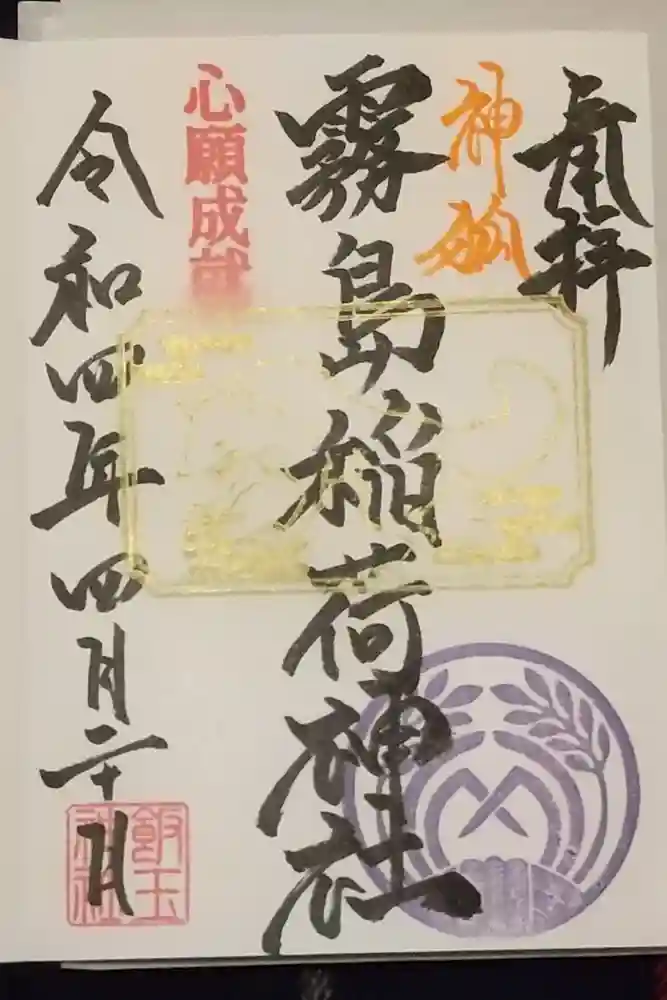 奉拝
神狐
霧島稲荷神社
心願成就
令和四年四月二十日
飯玉
神社